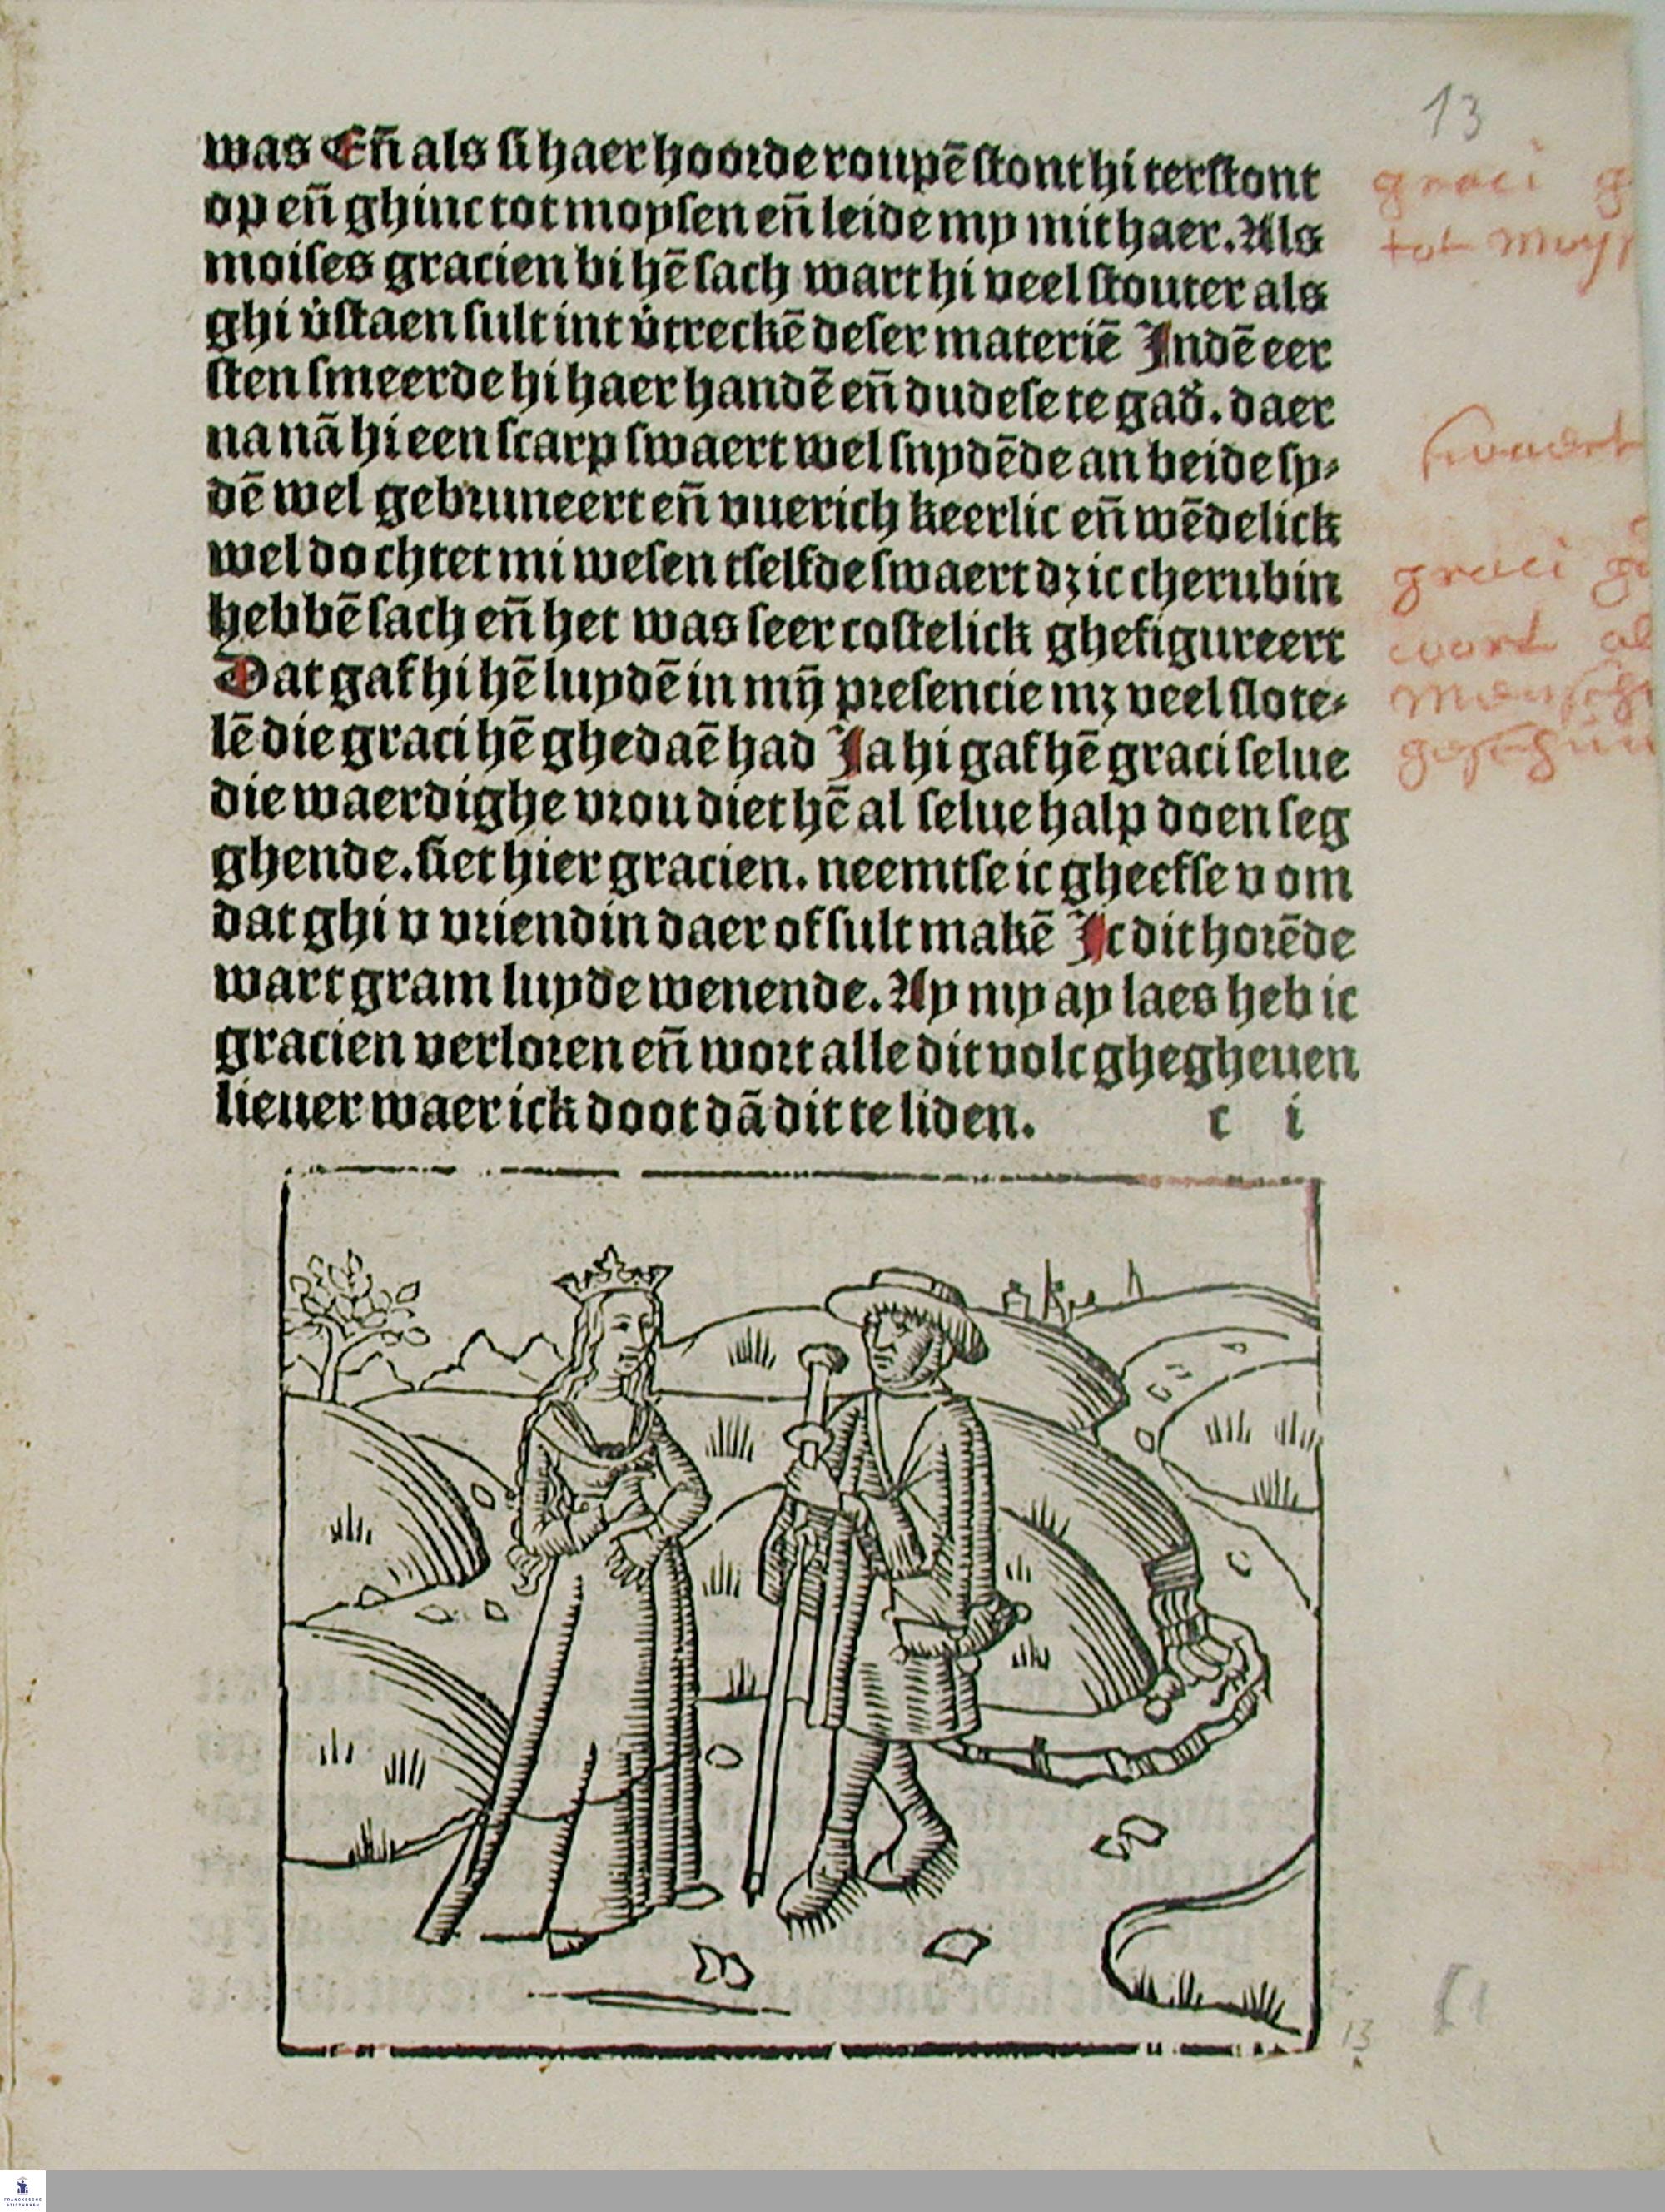 13
was Eñ als si haer hoorde roupē stont hi terstont
op eñ ghinc tot moysen eñ leide my mit haer. Als
moises gracien bi hē sach wart hi veel stouter als
ghi v̇staen sult int v̇treckē deser materiē Indē eer
sten smeerde hi haer handē eñ dudese te gad̕. daer
na nā hi een scarp swaert wel snydēde an beide sy⸗
dē wel gebruneert eñ vuerich keerlic eñ wēdelick
wel dochtet mi wesen tselfde swaert dꝫ ic cherubin
hebbē sach eñ het was seer costelick ghefigureert
Dat gaf hi hē luydē in mȳ presencie mꝫ veel slote⸗
lē die graci hē ghedaē had Ja hi gaf hē graci selue
die waerdighe vrou diet hē al selue halp doen seg
ghende. siet hier gracien. neemtse ic gheefse v om
dat ghi v vriendin daer of sult makē Ic dit horēde
wart gram luyde wenende. Ay my ay laes heb ic
gracien verloren eñ wort alle dit volc ghegheuen
lieuer waer ick doot dā dit te liden. c i
graci g
tot Moys
swaert
graci
wort al
Mensch
13
FRANCKESCHE
STIFTUNGEN